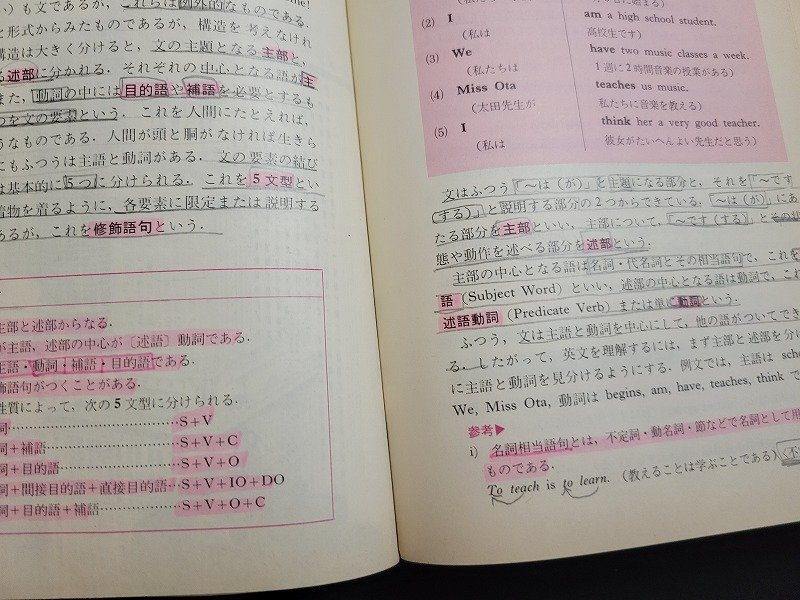 い）も文であるが，これらは例外的なものである．
と形式からみたものであるが，構造を考えなけれ
構造は大きく分けると，文の主題となる主部と，
る述部に分かれる．それぞれの中心となる語が主
また，動詞の中には目的語や補語を必要とするも
つを文の要素という．これを人間にたとえれば，
うなものである．人間が頭と胴がなければ生きら
にもふつうは主語と動詞がある．文の要素の結び
は基本的に5つに分けられる．これを5文型とい
着物を着るように，各要素に限定または説明する
あるが，これを修飾語句という．
主部と述部からなる．
が主語，述部の中心が〔述語〕動詞である．
主語・動詞・補語・目的語である．
飾語句がつくことがある．
性質によって，次の5文型に分けられる．
詞……S+V
詞＋補語……S+V+C
詞＋目的語……S+V+O
詞＋間接目的語＋直接目的語…S+V+IO+DO
詞＋目的語＋補語……S+V+O+C
(2) I am a high school student.
（私は 高校生です）
(3) We have two music classes a week.
（私たちは 1週に2時間音楽の授業がある）
(4) Miss Ota teaches us music.
（太田先生が 私たちに音楽を教える）
(5) I think her a very good teacher.
（私は 彼女がたいへんよい先生だと思う）
文はふつう「～は（が）」と主題になる部分と，それを「～です
（する）」と説明する部分の2つからできている．「～は（が）」にあ
たる部分を主部といい，主部について，「～です（する）」とその状
態や動作を述べる部分を述部という．
主部の中心となる語は名詞・代名詞とその相当語句で，これを
語（Subject Word）といい，述部の中心となる語は動詞で，これ
述語動詞（Predicate Verb）または単に動詞という．
ふつう，文は主語と動詞を中心にして，他の語がついてでき
る．したがって，英文を理解するには，まず主部と述部を分け
に主語と動詞を見分けるようにする．例文では，主語は scho
We, Miss Ota, 動詞は begins, am, have, teaches, think で
参考▶
i) 名詞相当語句とは，不定詞・動名詞・節などで名詞として用
ものである．
To teach is to learn.（教えることは学ぶことである）〈不